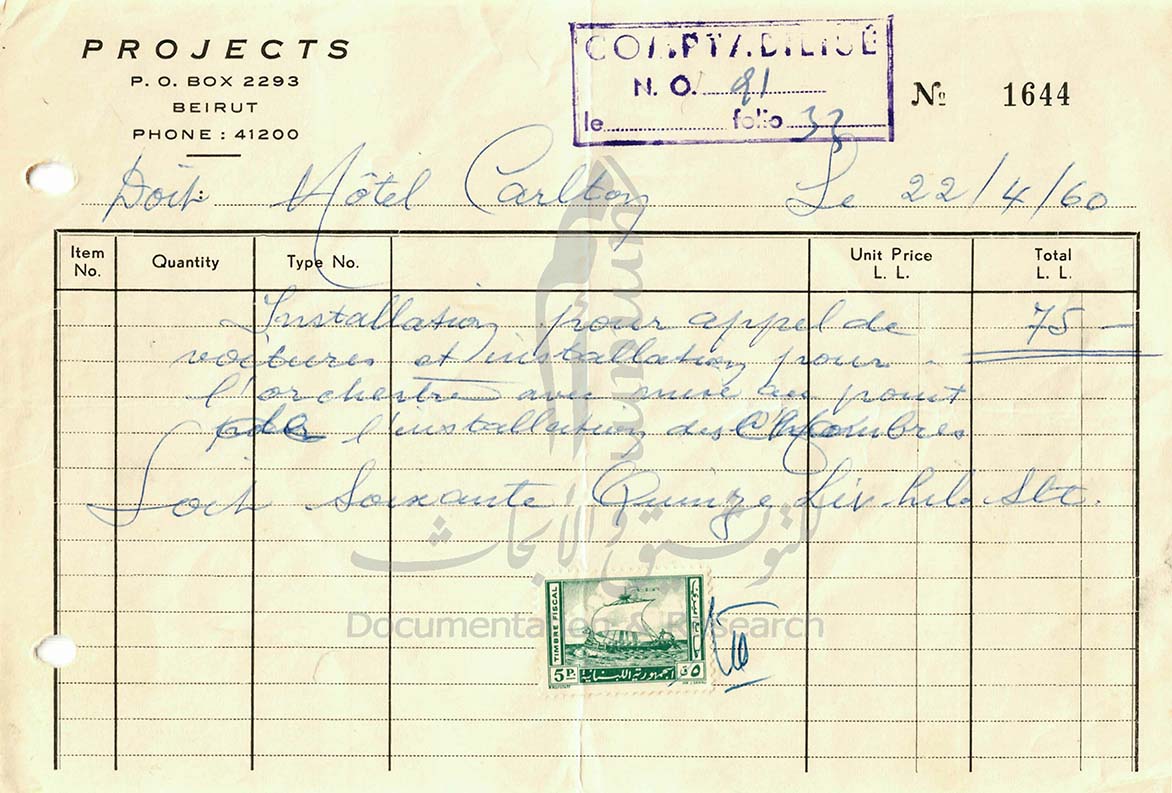 PROJECTS
P. O. BOX 2293
BEIRUT
PHONE : 41200
COMPTABILITÉ
N. O. 91
le folio 32
№ 1644
Doit: Hôtel Carlton Le 22/4/60
Item No. Quantity Type No. Unit Price L. L. Total L. L.
Installation pour appel de 75 —
voitures et installation pour
l'orchestre avec mise au point
l'installation des Chambres
Soit Soixante Quinze Liv. lib. Slt.
umam
للتوثيق والأبحاث
Documentation & Research
TIMBRE FISCAL
5 P.
الجمهورية اللبنانية
٥ ق